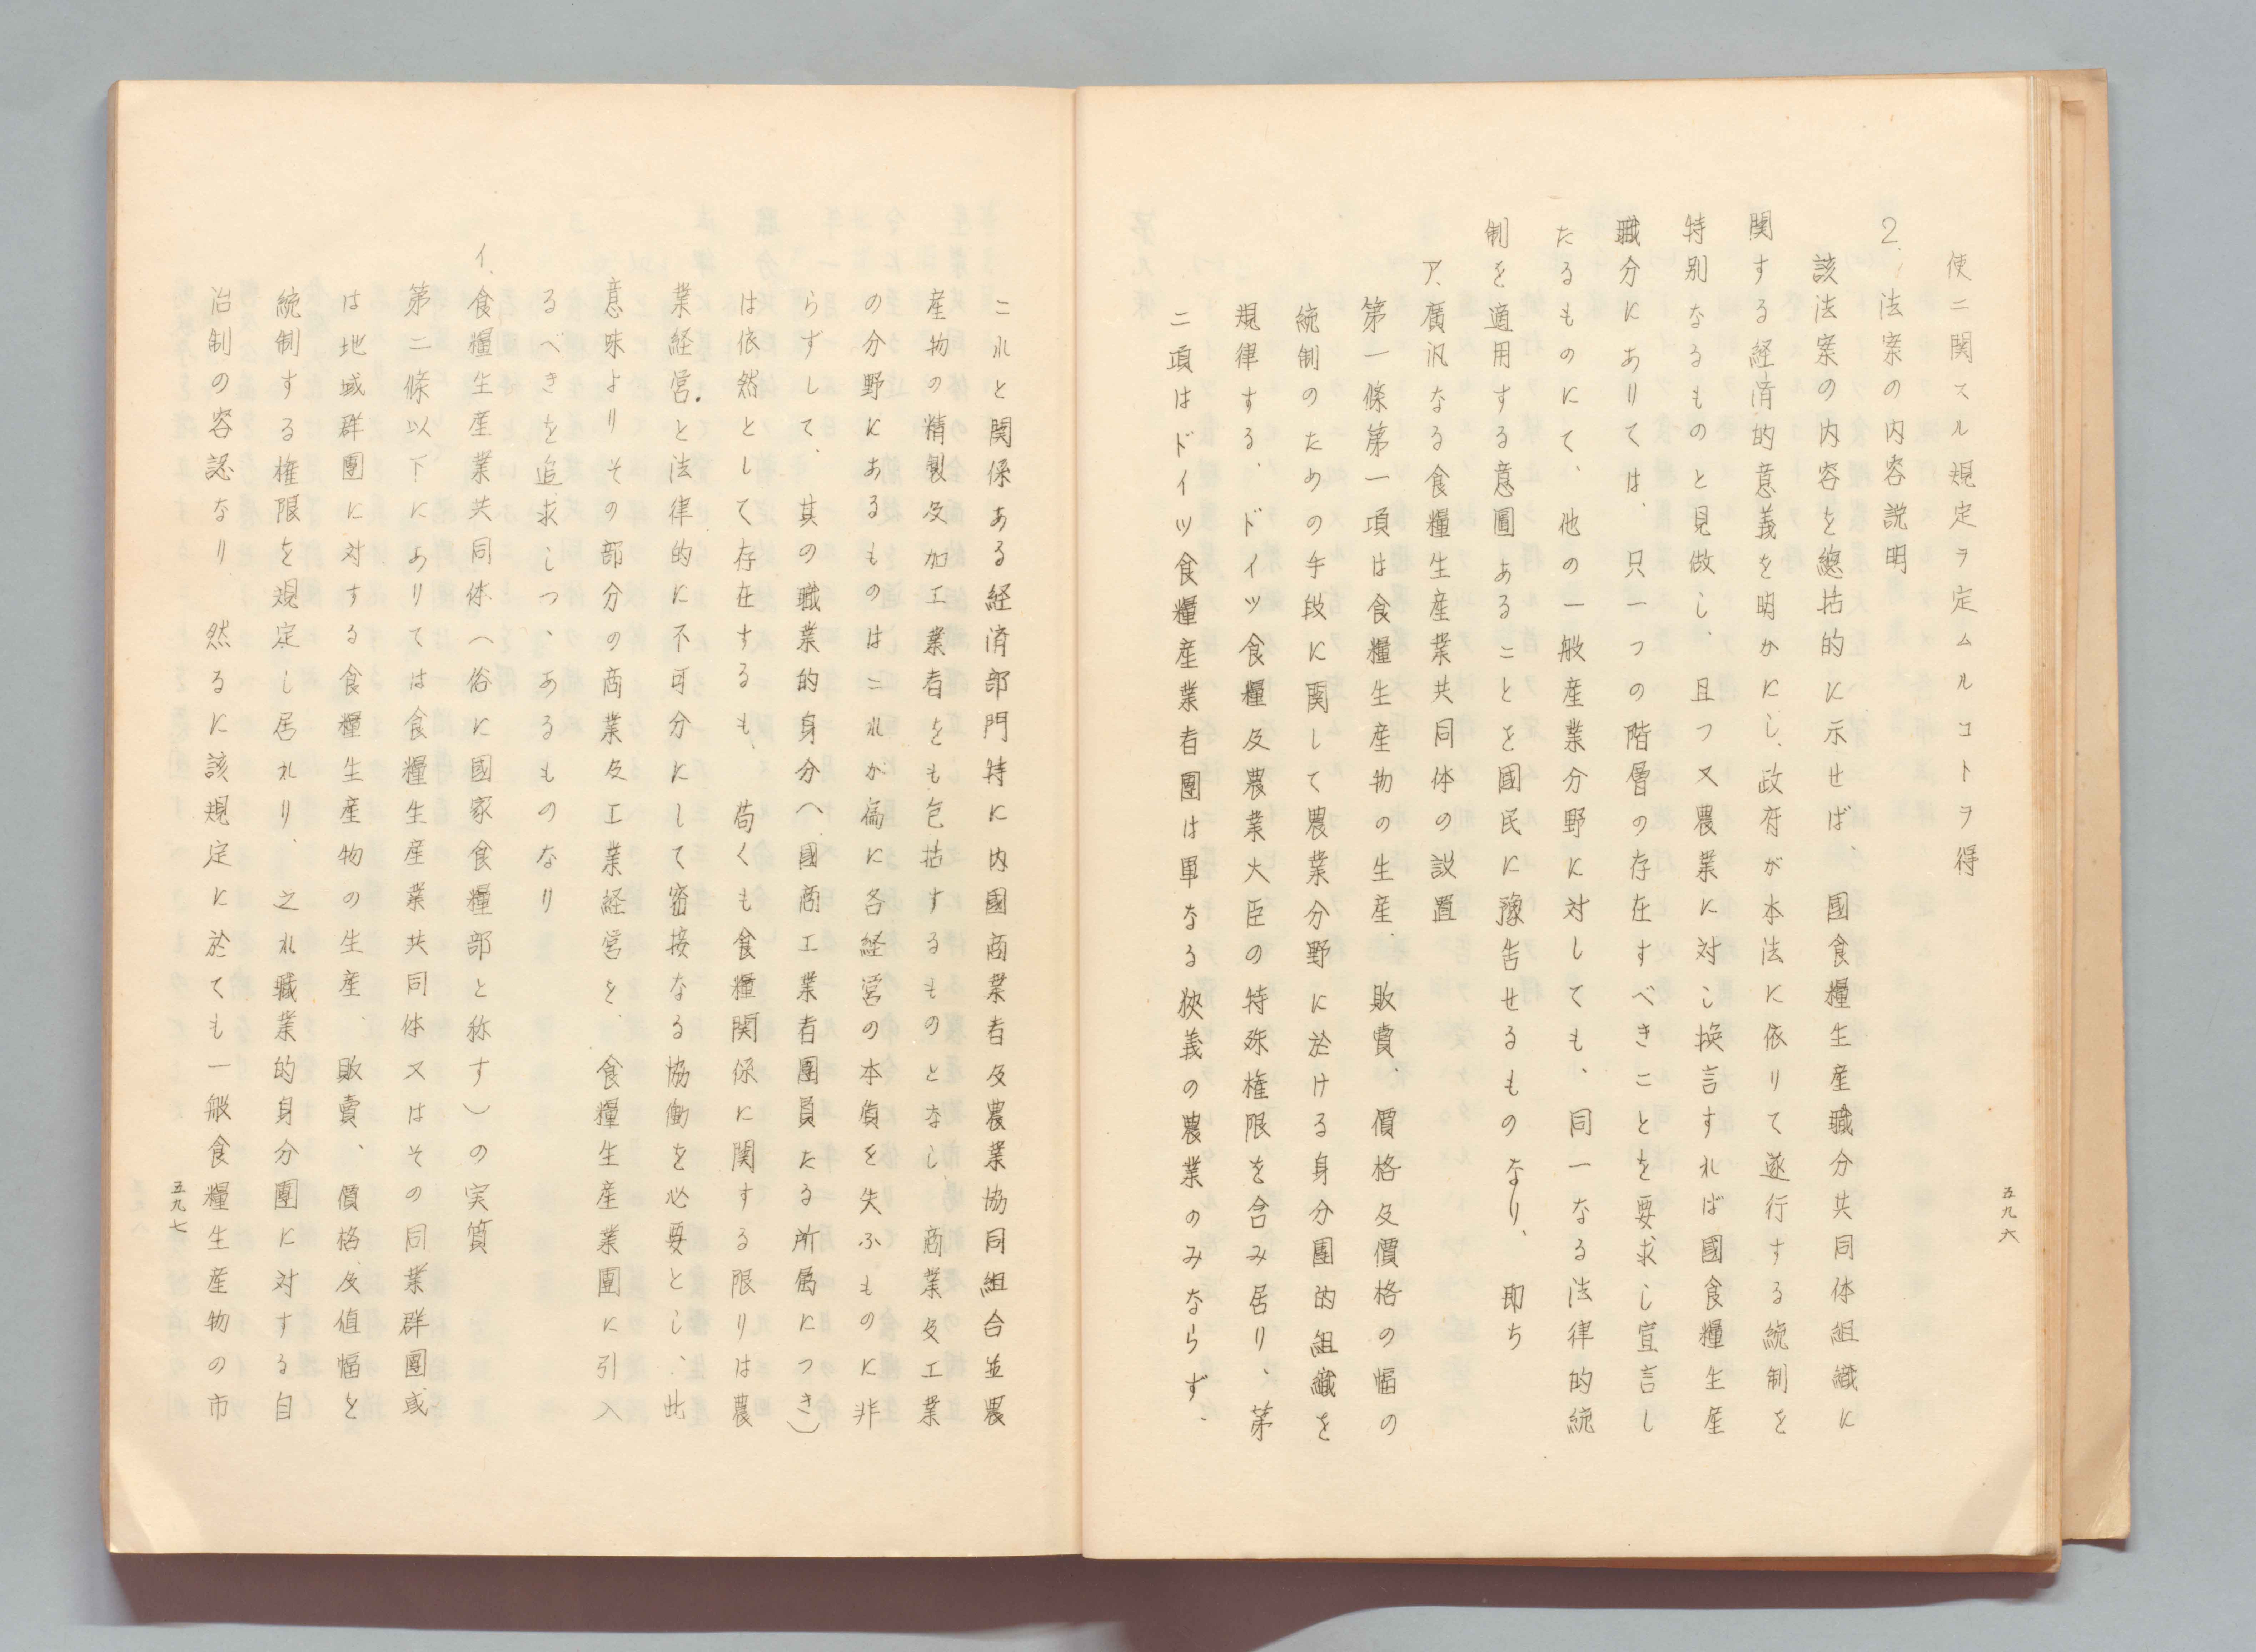 使ニ関スル規定ヲ定ムルコトヲ得
2.法案の内容説明
該法案の内容を總括的に示せば、國食糧生産職分共同体組織に
関する経済的意義を明かにし、政府が本法に依りて遂行する統制を
特別なるものと見做し、且つ又農業に対し換言すれば國食糧生産
職分にありては、只一つの階層の存在すべきことを要求し宣言し
たるものにて、他の一般産業分野に対しても、同一なる法律的統
制を適用する意圖あることを國民に豫告せるものなり、即ち
ア、廣汎なる食糧生産業共同体の設置
第一條第一項は食糧生産物の生産、販賣、價格及價格の幅の
統制のための手段に関して農業分野に於ける身分團的組織を
規律する、ドイツ食糧及農業大臣の特殊権限を含み居り、第
二項はドイツ食糧産業者團は単なる狹義の農業のみならず、
五九六
これと関係ある経済部門特に内國商業者及農業協同組合並農
産物の精製及加工業者をも包括するものとなし、商業及工業
の分野にあるものはこれが爲に各経営の本質を失ふものに非
らずして、其の職業的身分へ國商工業者團員たる所属につき)
は依然として存在するも、苟くも食糧関係に関する限りは農
業経営と法律的に不可分にして密接なる協働を必要とし、此
意味よりその部分の商業及工業経営を、食糧生産業團に引入
るべきを追求しつ、あるものなり
イ、食糧生産業共同体(俗に國家食糧部と称す)の実質
第二條以下にありては食糧生産業共同体又はその同業群團或
は地域群團に対する食糧生産物の生産、販賣、價格及値幅を
統制する権限を規定し居れり、之れ職業的身分團に対する自
治制の容認なり、然るに該規定に於ても一般食糧生産物の市
五九七